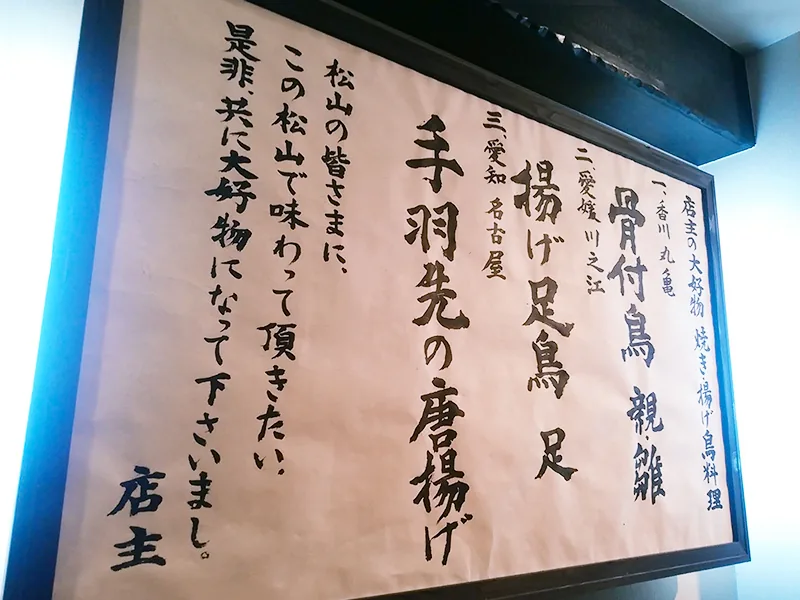 店主の大好物 焼き・揚げ鳥料理
一、香川 丸亀
骨付鳥 親・雛
二、愛媛 川之江
揚げ足鳥 足
三、愛知 名古屋
手羽先の唐揚げ
松山の皆さまに、
この松山で味わって頂きたい。
是非、共に大好物になって下さいまし。
店主